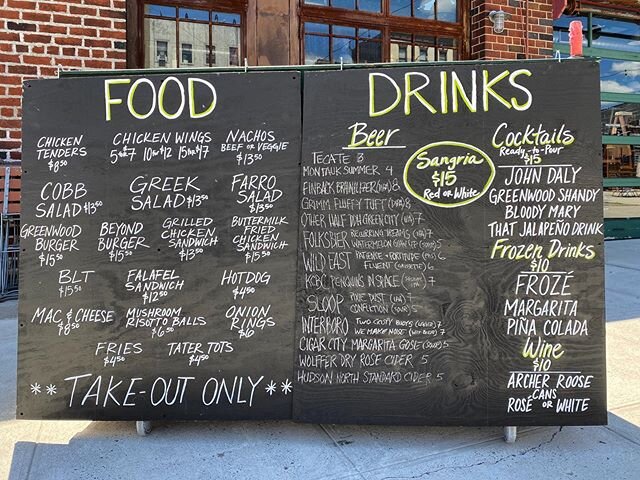 FOOD
CHICKEN
TENDERS
$8.50
CHICKEN WINGS
5 $7 10 $12 15 $17
NACHOS
BEEF OR VEGGIE
$13.50
COBB
SALAD $13.50
GREEK
SALAD $13.50
FARRO
SALAD
$13.50
GREENWOOD
BURGER
$15.50
BEYOND
BURGER
$15.50
GRILLED
CHICKEN
SANDWICH
$13.50
BUTTERMILK
FRIED
CHICKEN
SANDWICH
$15.50
BLT
$15.50
FALAFEL
SANDWICH
$12.50
HOTDOG
$4.50
MAC & CHEESE
$8.50
MUSHROOM
RISOTTO BALLS
$6.50
ONION
RINGS
$6
FRIES
$4.50
TATER TOTS
$4.50
** TAKE-OUT ONLY **
DRINKS
Beer
TECATE 3
MONTAUK SUMMER 4
FINBACK
GRIMM FLUFFY TUFT 8
OTHER HALF DDH GREEN CITY (IPA) 7
FOLKSBIER WATERMELON 5
WILD EAST PATIENCE + FORTITUDE 6
6
KCBC PENGUINS IN SPACE 7
SLOOP (IPA) 7
(SOUR) 5
INTERBORO 7
WE MAKE NOISE 7
CIGAR CITY MARGARITA GOSE (SOUR) 5
WOLFFER DRY ROSE CIDER 5
HUDSON NORTH STANDARD CIDER 5
Sangria
$15
Red or White
Cocktails
Ready-to-Pour
$15
JOHN DALY
GREENWOOD SHANDY
BLOODY MARY
THAT JALAPEÑO DRINK
Frozen Drinks
$10
FROZÉ
MARGARITA
PIÑA COLADA
Wine
$10
ARCHER ROOSE
CANS
ROSÉ OR WHITE